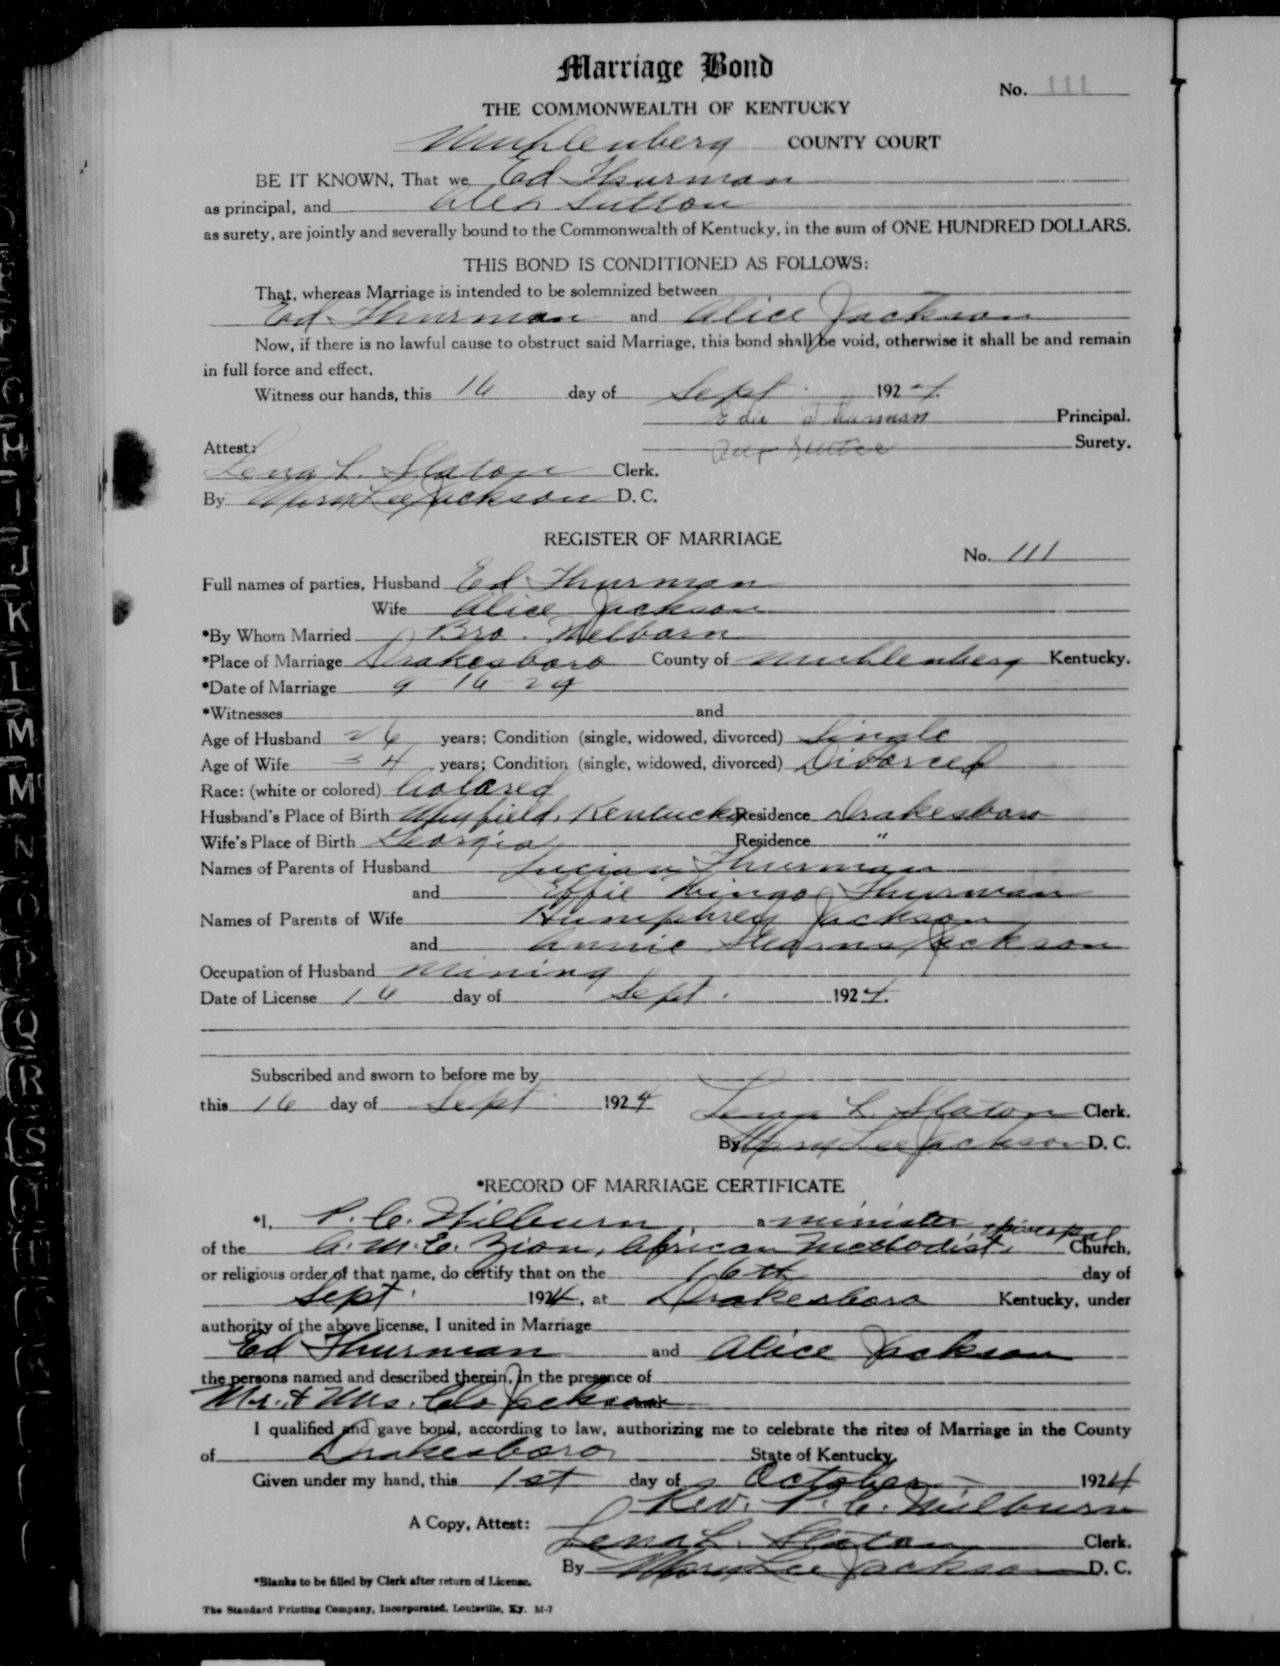 Marriage Bond
No. 111
THE COMMONWEALTH OF KENTUCKY
Muhlenberg COUNTY COURT
BE IT KNOWN, That we Ed Thurman
as principal, and Alex Sutton
as surety, are jointly and severally bound to the Commonwealth of Kentucky, in the sum of ONE HUNDRED DOLLARS.
THIS BOND IS CONDITIONED AS FOLLOWS:
That, whereas Marriage is intended to be solemnized between
Ed Thurman and Alice Jackson
Now, if there is no lawful cause to obstruct said Marriage, this bond shall be void, otherwise it shall be and remain
in full force and effect.
Witness our hands, this 16 day of Sept. 1924.
Edie Thurman Principal.
Surety.
Attest:
Lena L. Slaton Clerk.
By Mary Lee Jackson D. C.
REGISTER OF MARRIAGE
No. 111
Full names of parties, Husband Ed Thurman
Wife Alice Jackson
*By Whom Married Bro. Welborn
*Place of Marriage Drakesboro County of Muhlenberg Kentucky.
*Date of Marriage 9-16-24
*Witnesses and
Age of Husband 26 years; Condition (single, widowed, divorced) Single
Age of Wife 34 years; Condition (single, widowed, divorced) Divorced
Race: (white or colored) Colored
Husband's Place of Birth Mayfield, Kentucky Residence Drakesboro
Wife's Place of Birth Georgia Residence "
Names of Parents of Husband Lucian Thurman
and Effie Ringo Thurman
Names of Parents of Wife Humphrey Jackson
and Annie Stearns Jackson
Occupation of Husband Mining
Date of License 16 day of Sept. 1924.
Subscribed and sworn to before me by
this 16 day of Sept. 1924 Lena L. Slaton Clerk.
By Mary Lee Jackson D. C.
*RECORD OF MARRIAGE CERTIFICATE
*I, P. C. Wilburn, a minister
of the A. M. E. Zion, African Methodist, Episcopal Church,
or religious order of that name, do certify that on the 16th day of
Sept. 1924, at Drakesboro Kentucky, under
authority of the above license, I united in Marriage
Ed Thurman and Alice Jackson
the persons named and described therein, in the presence of
Mr. & Mrs. Clo Jackson
I qualified and gave bond, according to law, authorizing me to celebrate the rites of Marriage in the County
of Drakesboro, State of Kentucky.
Given under my hand, this 1st day of October 1924
Rev. P. C. Wilburn
A Copy, Attest:
Lena L. Slaton Clerk.
By Mary Lee Jackson D. C.
*Blanks to be filled by Clerk after return of License.
The Standard Printing Company, Incorporated, Louisville, Ky. M-7